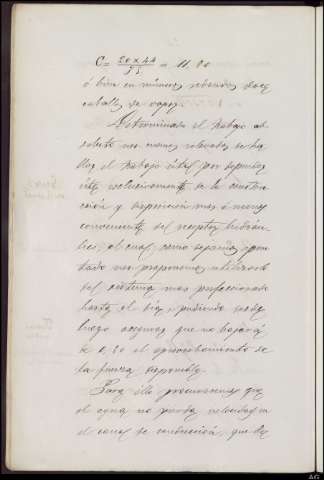 C = 20 x 44 / 75 = 11.80
ó bien en números redondos doce
caballos de vapor.
Determinado el trabajo ab-
soluto nos vemos relevados de ha-
llar el trabajo útil por depender
éste exclusivamente de la construc-
ción y disposición mas ó menos
conveniente del receptor hidráu-
lico, el cual como
nos proponemos utilizarlo
del sistema mas perfeccionado
hasta el dia, pudiendo desde
luego asegurar que no bajará
de 0,80 el aprovechamiento de
la fuerza disponible.
Para ello procuraremos que
el agua no pierda velocidad en
el canal de conducción, que